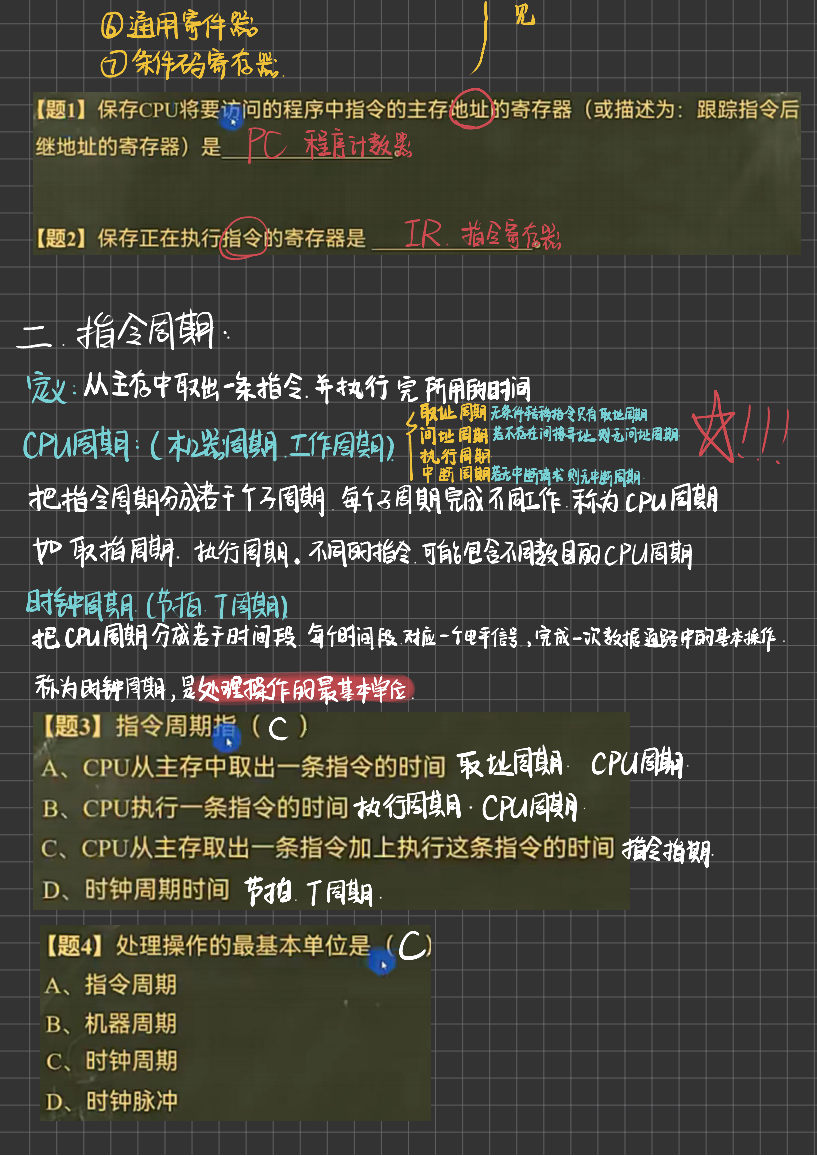 ⑥通用寄存器
⑦条件码寄存器.
见
【题1】保存CPU将要访问的程序中指令的主存地址的寄存器（或描述为：跟踪指令后
继地址的寄存器）是 PC 程序计数器 。
【题2】保存正在执行指令的寄存器是 IR. 指令寄存器 。
二. 指令周期.
定义: 从主存中取出一条指令.并执行完所用的时间
CPU周期: (机器周期.工作周期)
取址周期 无条件转移指令只有取址周期
间址周期 若不存在间接寻址.则无间址周期
执行周期
中断周期 若无中断请求 则无中断周期
!!!
把指令周期分成若干个子周期.每个子周期完成不同工作.称为CPU周期
如 取指周期. 执行周期。不同的指令.可能包含不同数目的CPU周期
时钟周期.(节拍.T周期)
把CPU周期分成若干时间段.每个时间段.对应一个电平信号,完成一次数据通路中的基本操作.
称为时钟周期,是处理操作的最基本单位.
【题3】指令周期指（ C ）
A、CPU从主存中取出一条指令的时间 取址周期. CPU周期.
B、CPU执行一条指令的时间 执行周期. CPU周期.
C、CPU从主存取出一条指令加上执行这条指令的时间 指令指期.
D、时钟周期时间 节拍. T周期.
【题4】处理操作的最基本单位是（C）
A、指令周期
B、机器周期
C、时钟周期
D、时钟脉冲